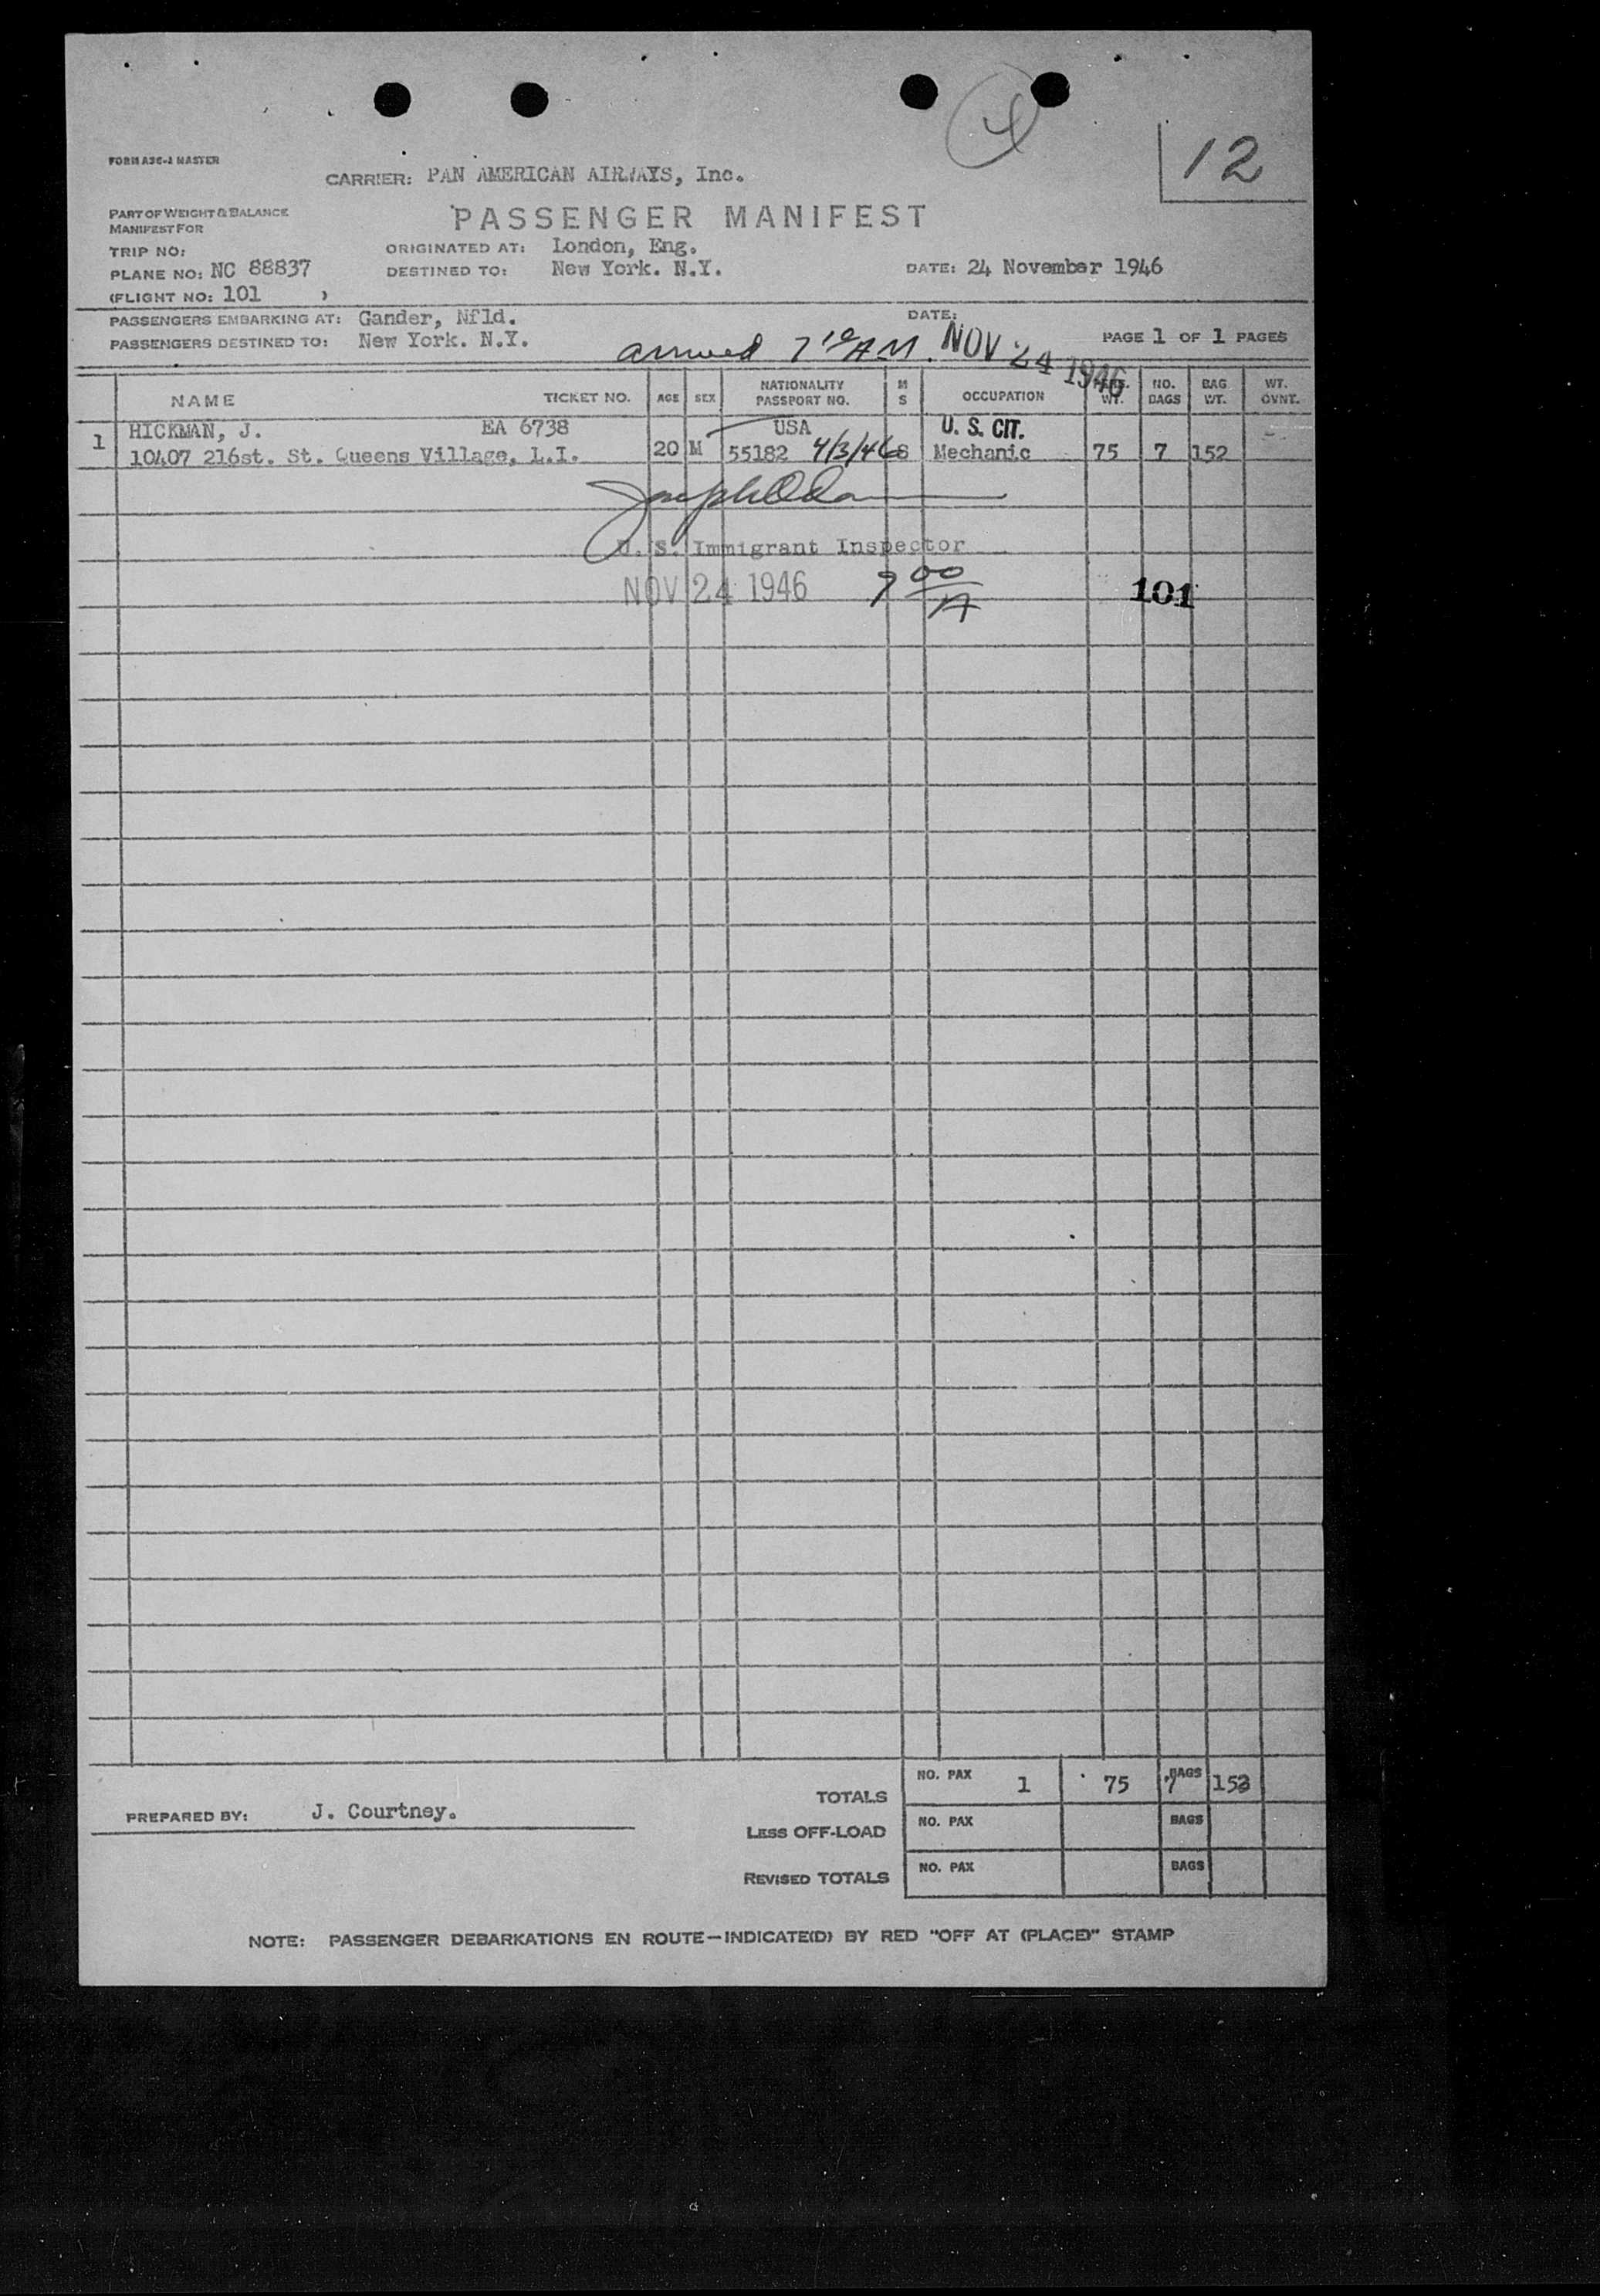 4
12
FORM A36-J MASTER
CARRIER: PAN AMERICAN AIRWAYS, Inc.
PART OF WEIGHT & BALANCE
MANIFEST FOR
PASSENGER MANIFEST
TRIP NO:
ORIGINATED AT: London, Eng.
PLANE NO: NC 88837
DESTINED TO: New York. N.Y.
DATE: 24 November 1946
(FLIGHT NO: 101 )
PASSENGERS EMBARKING AT: Gander, Nfld.
DATE:
PASSENGERS DESTINED TO: New York. N.Y.
arrived 7 10 AM. NOV 24 1946
PAGE 1 OF 1 PAGES
NAME TICKET NO. AGE SEX NATIONALITY PASSPORT NO. M S OCCUPATION PASS. WT. NO. BAGS BAG WT. WT. OVNT.
1 HICKMAN, J. EA 6738 USA U. S. CIT.
10407 216st. St. Queens Village, L.I. 20 M 55182 4/3/46 S Mechanic 75 7 152
U. S. Immigrant Inspector
NOV 24 1946 9 00 A 101
TOTALS NO. PAX 1 75 BAGS 7 152
PREPARED BY: J. Courtney.
LESS OFF-LOAD NO. PAX BAGS
REVISED TOTALS NO. PAX BAGS
NOTE: PASSENGER DEBARKATIONS EN ROUTE—INDICATE(D) BY RED "OFF AT (PLACE)" STAMP